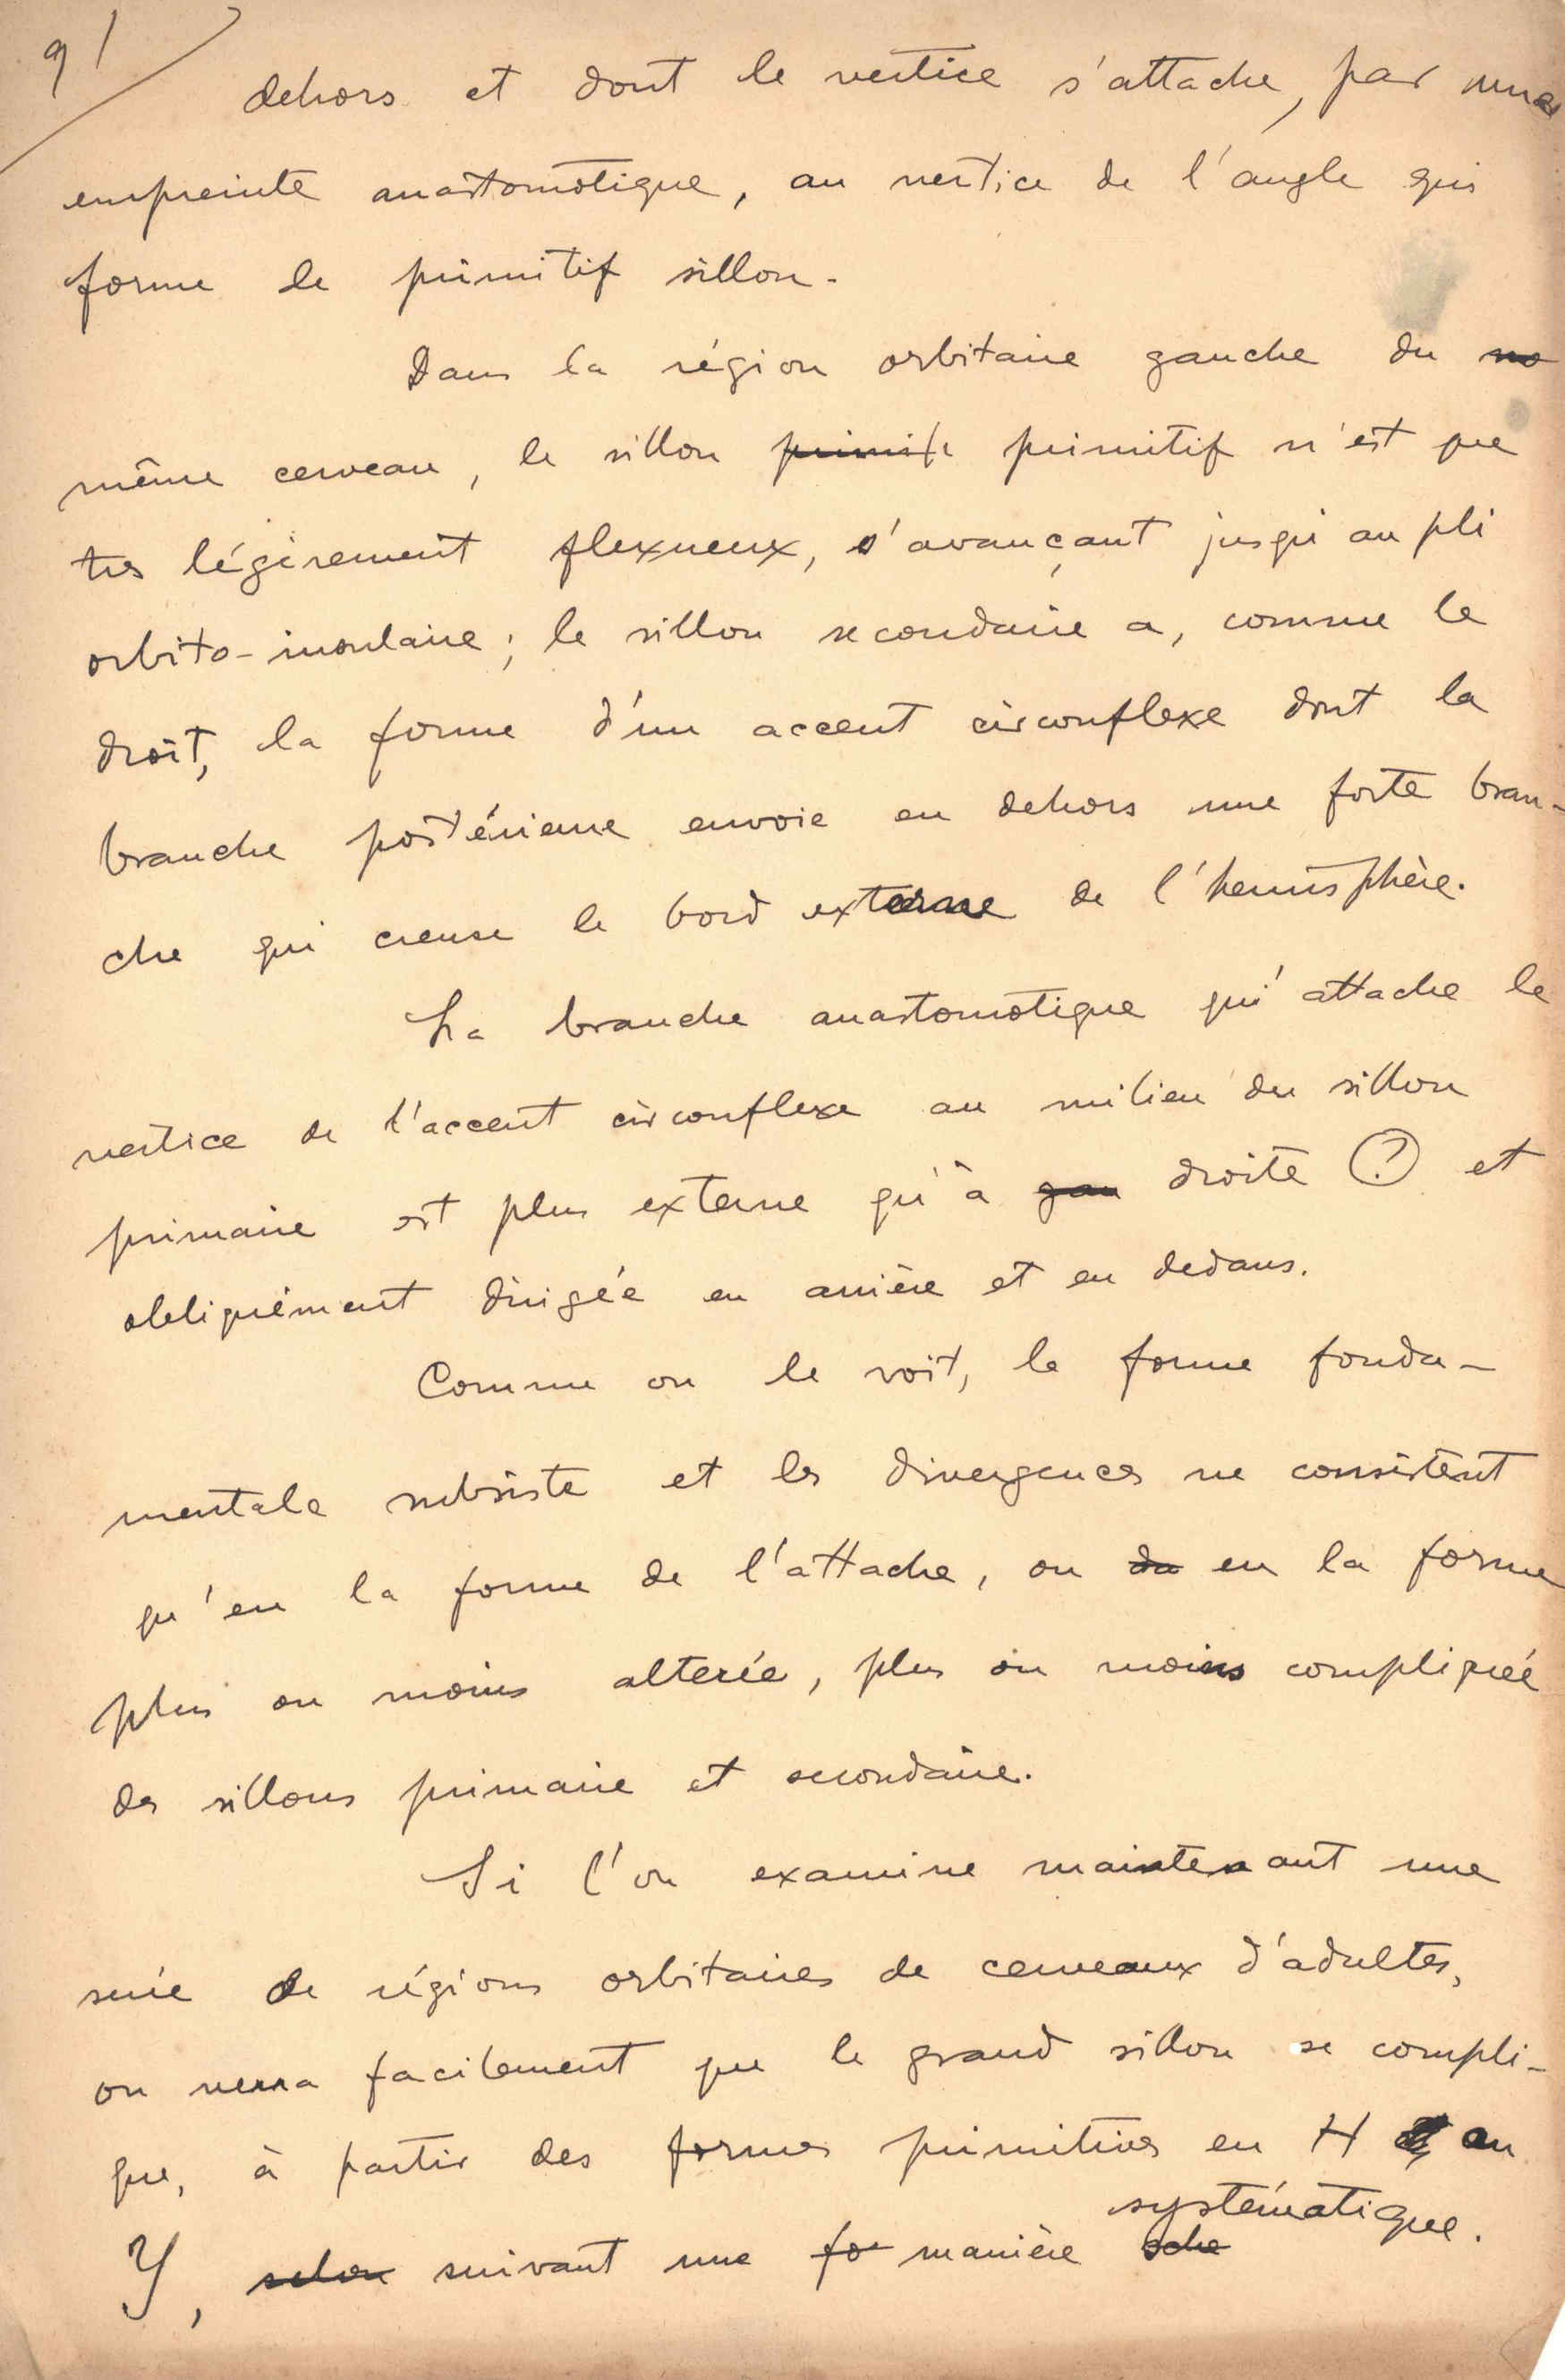 9/
dehors et dont le vertice s'attache, par une
empreinte anastomotique, au vertice de l'angle qui
forme le primitif sillon.
Dans la région orbitaire gauche du
même cerveau, le sillon primitif n'est que
très légèrement flexueux, s'avançant jusqu'au pli
orbito-insulaire ; le sillon secondaire a, comme le
droit, la forme d'un accent circonflexe dont la
branche postérieure envoie en dehors une forte bran-
che qui creuse le bord externe de l'hemisphère.
La branche anastomotique qui attache le
vertice de l'accent circonflexe au milieu du sillon
primaire est plus externe qu'à gau droite (?) et
obliquement dirigée en arrière et en dedans.
Comme on le voit, la forme fonda-
mentale subsiste et les divergences ne consistent
qu'en la forme de l'attache, ou da en la forme
plus ou moins alterée, plus ou moins compliquée
des sillons primaire et secondaire.
Si l'on examine maintenant une
serie de régions orbitaires de cerveaux d'adultes,
on verra facilement que le grand sillon se compli-
que, à partir des formes primitives en H ou
Y, selon suivant une fo manière sche systématique.